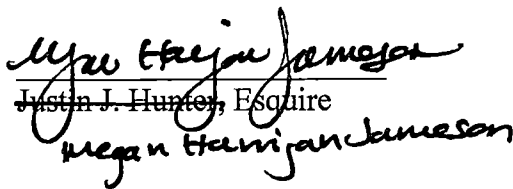 Megan Harrigan Jameson
Justin J. Hunter, Esquire
Megan Harrigan Jameson